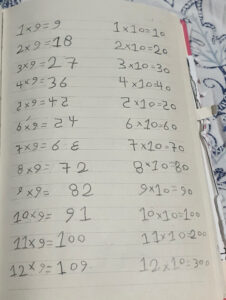 1×9=9
2×9=18
3×9=27
4×9=36
2×9=42
6×9=24
7×9=6ε
8×9=72
9×9=82
10×9=91
11×9=100
12×9=109
1×10=10
2×10=20
3×10=30
4×10=40
2×10=20
6×10=60
7×10=70
8×10=80
9×10=90
10×10=100
11×10=200
12×10=300